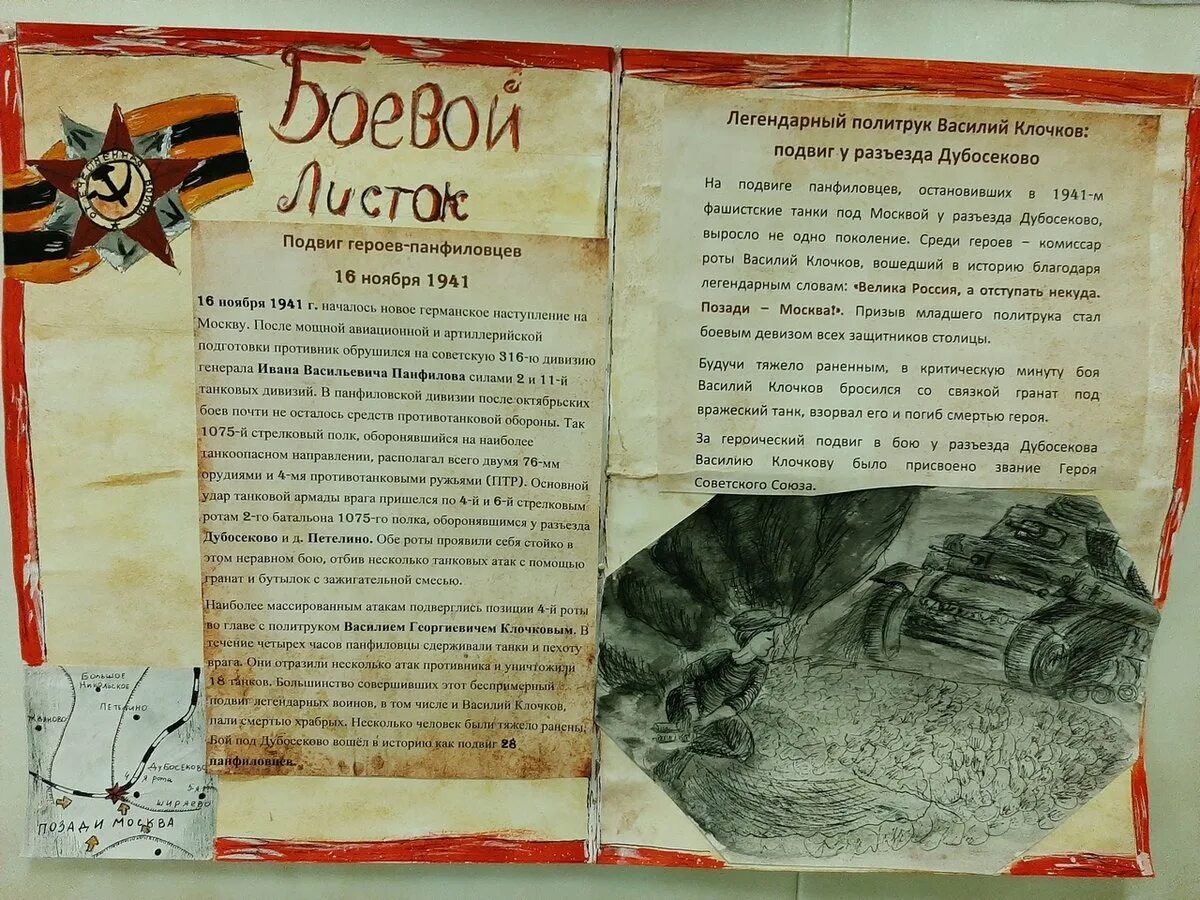 Боевой
Листок
ОТЕЧЕСТВЕННАЯ ВОЙНА
Подвиг героев-панфиловцев
16 ноября 1941
16 ноября 1941 г. началось новое германское наступление на
Москву. После мощной авиационной и артиллерийской
подготовки противник обрушился на советскую 316-ю дивизию
генерала Ивана Васильевича Панфилова силами 2 и 11-й
танковых дивизий. В панфиловской дивизии после октябрьских
боев почти не осталось средств противотанковой обороны. Так
1075-й стрелковый полк, оборонявшийся на наиболее
танкоопасном направлении, располагал всего двумя 76-мм
орудиями и 4-мя противотанковыми ружьями (ПТР). Основной
удар танковой армады врага пришелся по 4-й и 6-й стрелковым
ротам 2-го батальона 1075-го полка, оборонявшимся у разъезда
Дубосеково и д. Петелино. Обе роты проявили себя стойко в
этом неравном бою, отбив несколько танковых атак с помощью
гранат и бутылок с зажигательной смесью.
Наиболее массированным атакам подверглись позиции 4-й роты
во главе с политруком Василием Георгиевичем Клочковым. В
течение четырех часов панфиловцы сдерживали танки и пехоту
врага. Они отразили несколько атак противника и уничтожили
18 танков. Большинство совершивших этот беспримерный
подвиг легендарных воинов, в том числе и Василий Клочков,
пали смертью храбрых. Несколько человек были тяжело ранены.
Бой под Дубосеково вошёл в историю как подвиг 28
панфиловцев.
Большое
Никольское
Петелино
Жданово
Дубосеково
4-я рота
Ширяево
ПОЗАДИ МОСКВА
Легендарный политрук Василий Клочков:
подвиг у разъезда Дубосеково
На подвиге панфиловцев, остановивших в 1941-м
фашистские танки под Москвой у разъезда Дубосеково,
выросло не одно поколение. Среди героев – комиссар
роты Василий Клочков, вошедший в историю благодаря
легендарным словам: «Велика Россия, а отступать некуда.
Позади – Москва!». Призыв младшего политрука стал
боевым девизом всех защитников столицы.
Будучи тяжело раненным, в критическую минуту боя
Василий Клочков бросился со связкой гранат под
вражеский танк, взорвал его и погиб смертью героя.
За героический подвиг в бою у разъезда Дубосекова
Василию Клочкову было присвоено звание Героя
Советского Союза.